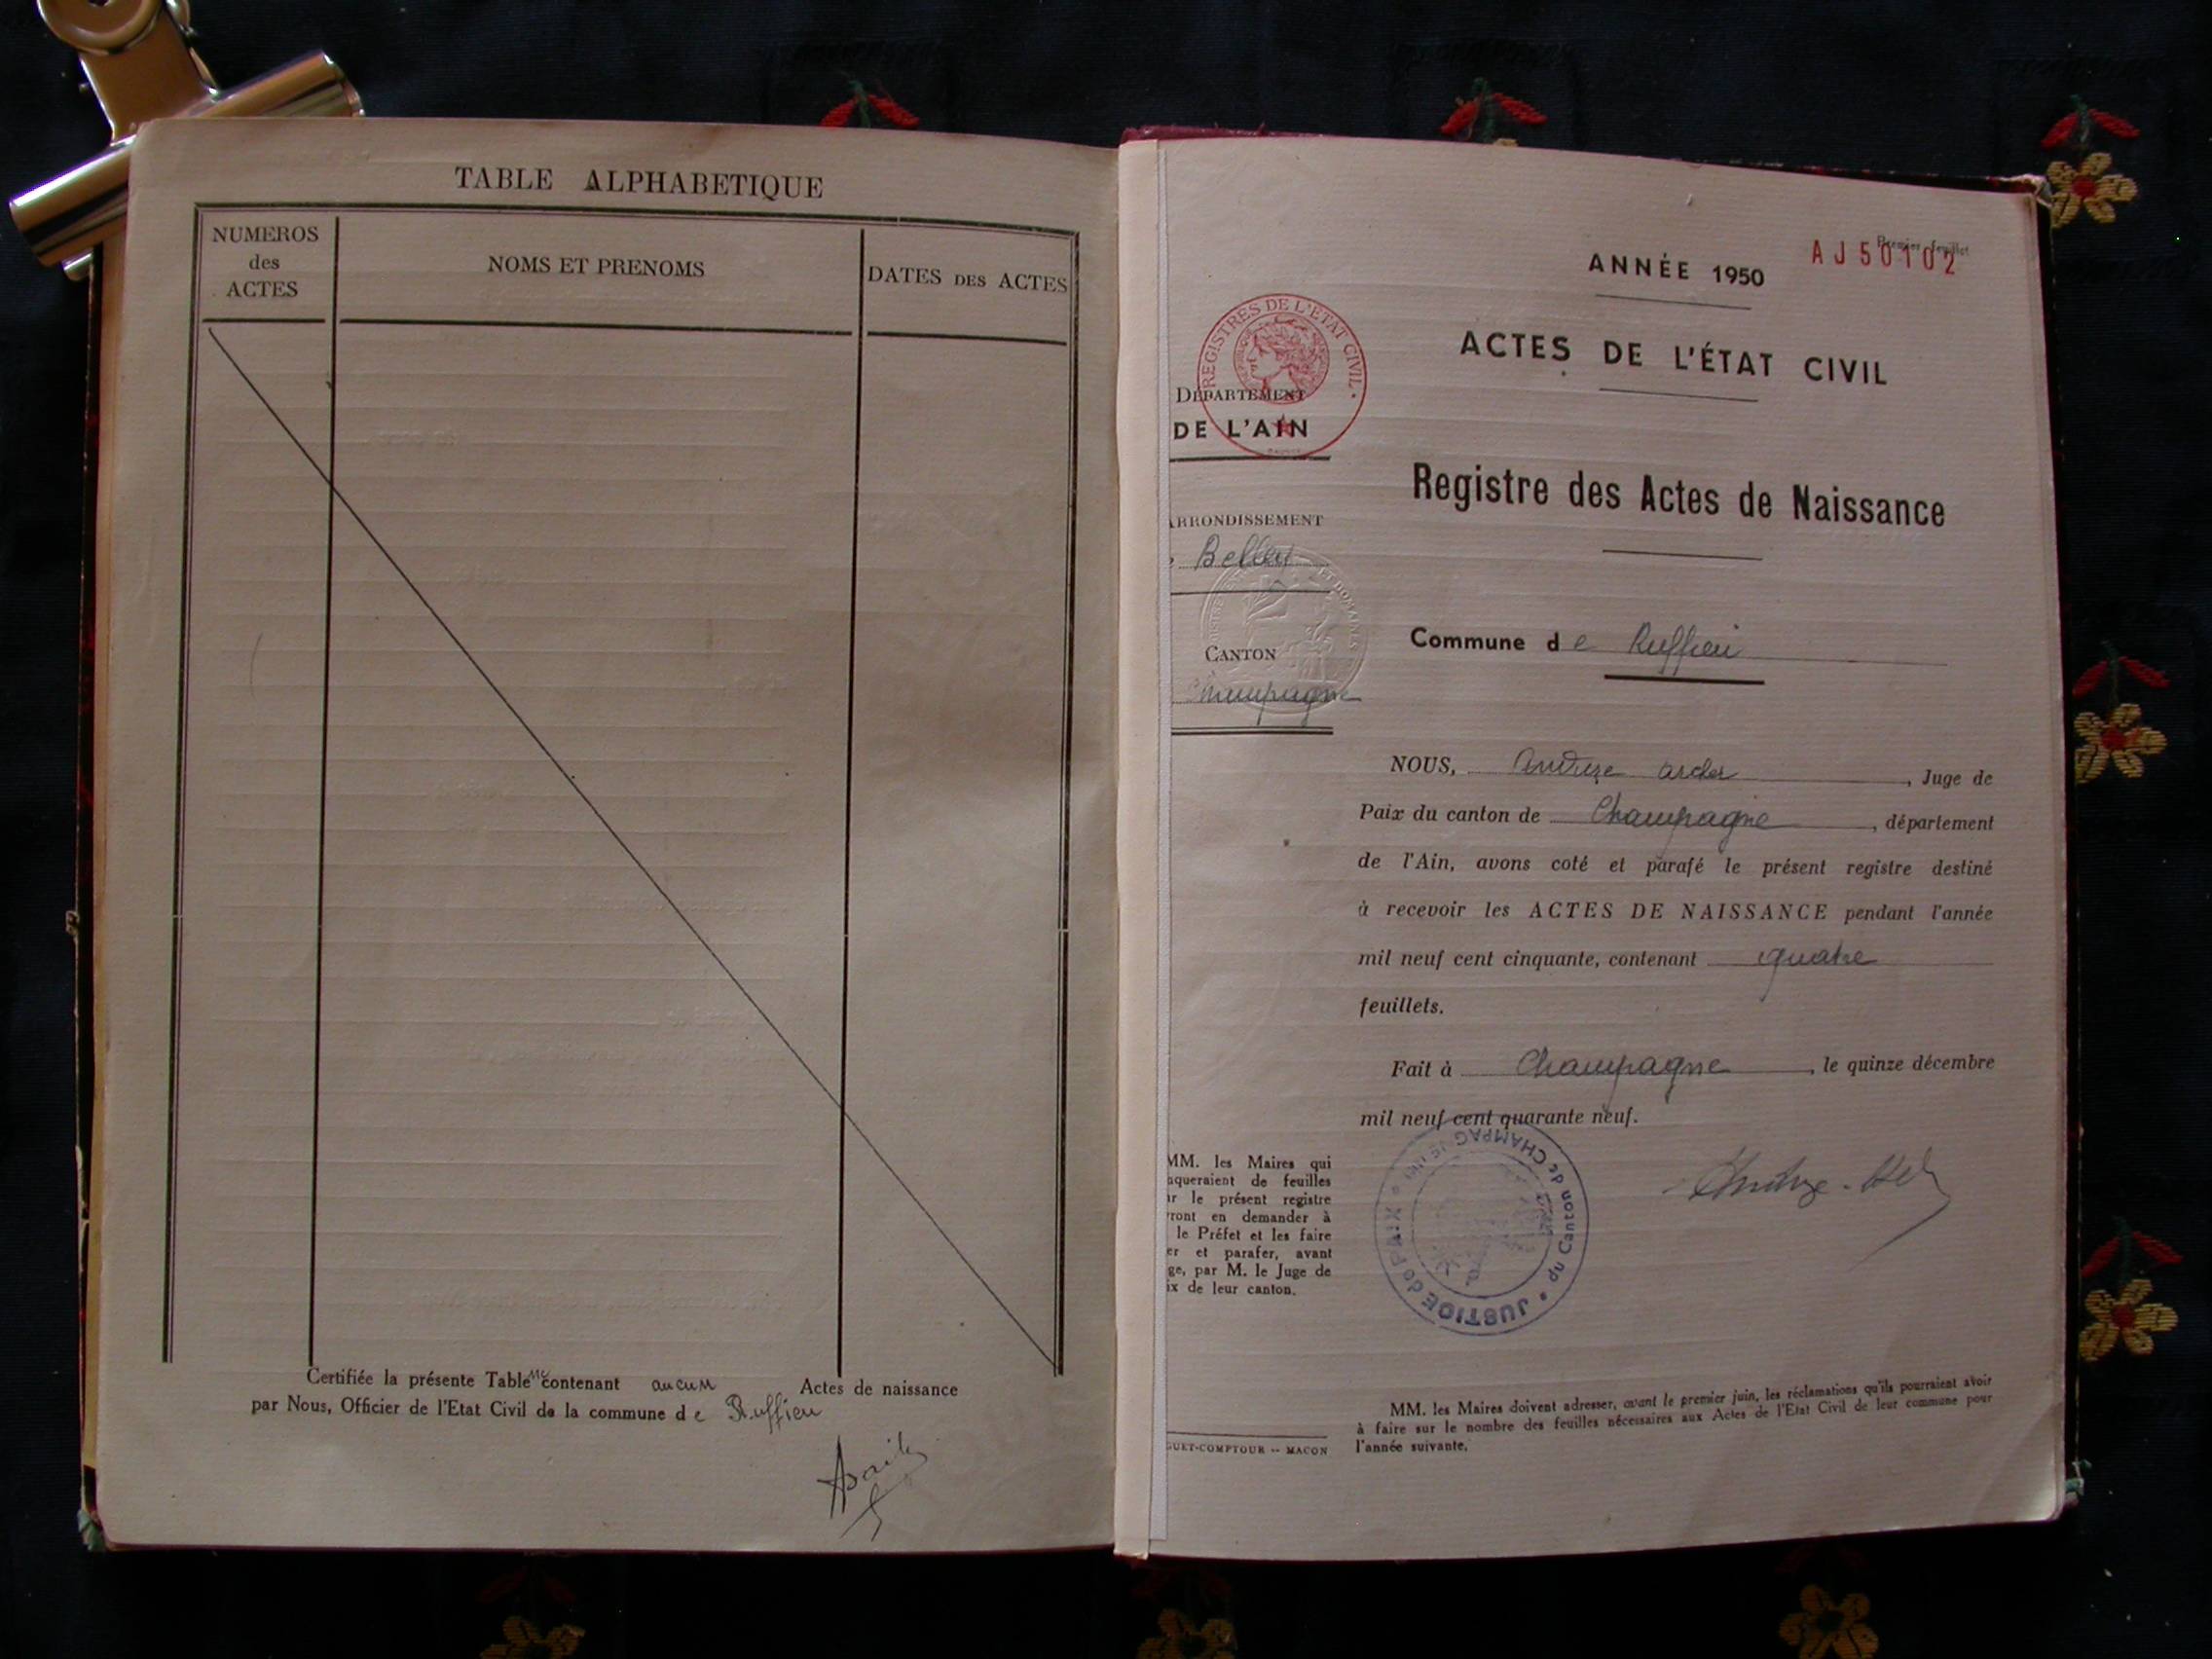 TABLE ALPHABETIQUE
NUMEROS
des
ACTES
NOMS ET PRENOMS
DATES DES ACTES
Certifiée la présente Table contenant aucun Actes de naissance
par Nous, Officier de l'Etat Civil de la commune de Ruffieu
Premier feuillet
AJ50102
ANNÉE 1950
ACTES DE L'ÉTAT CIVIL
REGISTRES DE L'ETAT CIVIL
DÉPARTEMENT
DE L'AIN
Registre des Actes de Naissance
ARRONDISSEMENT
Belley
Commune de Ruffieu
CANTON
Champagne
NOUS, , Juge de
Paix du canton de Champagne, département
de l'Ain, avons coté et parafé le présent registre destiné
à recevoir les ACTES DE NAISSANCE pendant l'année
mil neuf cent cinquante, contenant quatre
feuillets.
Fait à Champagne, le quinze décembre
mil neuf cent quarante neuf.
JUSTICE de PAIX du Canton de CHAMPAGNE
MM. les Maires qui
nqueraient de feuilles
ur le présent registre
vront en demander à
le Préfet et les faire
er et parafer, avant
ge, par M. le Juge de
ix de leur canton.
MM. les Maires doivent adresser, avant le premier juin, les réclamations qu'ils pourraient avoir
à faire sur le nombre des feuilles nécessaires aux Actes de l'Etat Civil de leur commune pour
l'année suivante.
GUET-COMPTOUR -- MACON